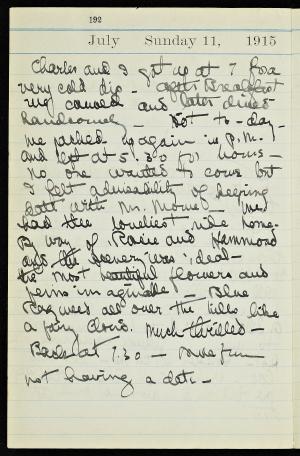 192
July Sunday 11, 1915
Charles and I got up at 7 for a
very cold dip - after Breakfast
we canoed and later dined
handsomely - Hot to-day -
we packed up again in P.M.
and left at 5.30 for home -
No one wanted to come but
I felt advisability of keeping
date with Mr. - We
had the loveliest ride home -
By way of and Hammond
and the scenery was ideal -
the most beautiful flowers and
ferns imaginable - Blue
Rag weed all over the hills like
a fairy cloud. Much thrilled -
Back at 7.30 - some fun
not having a date -